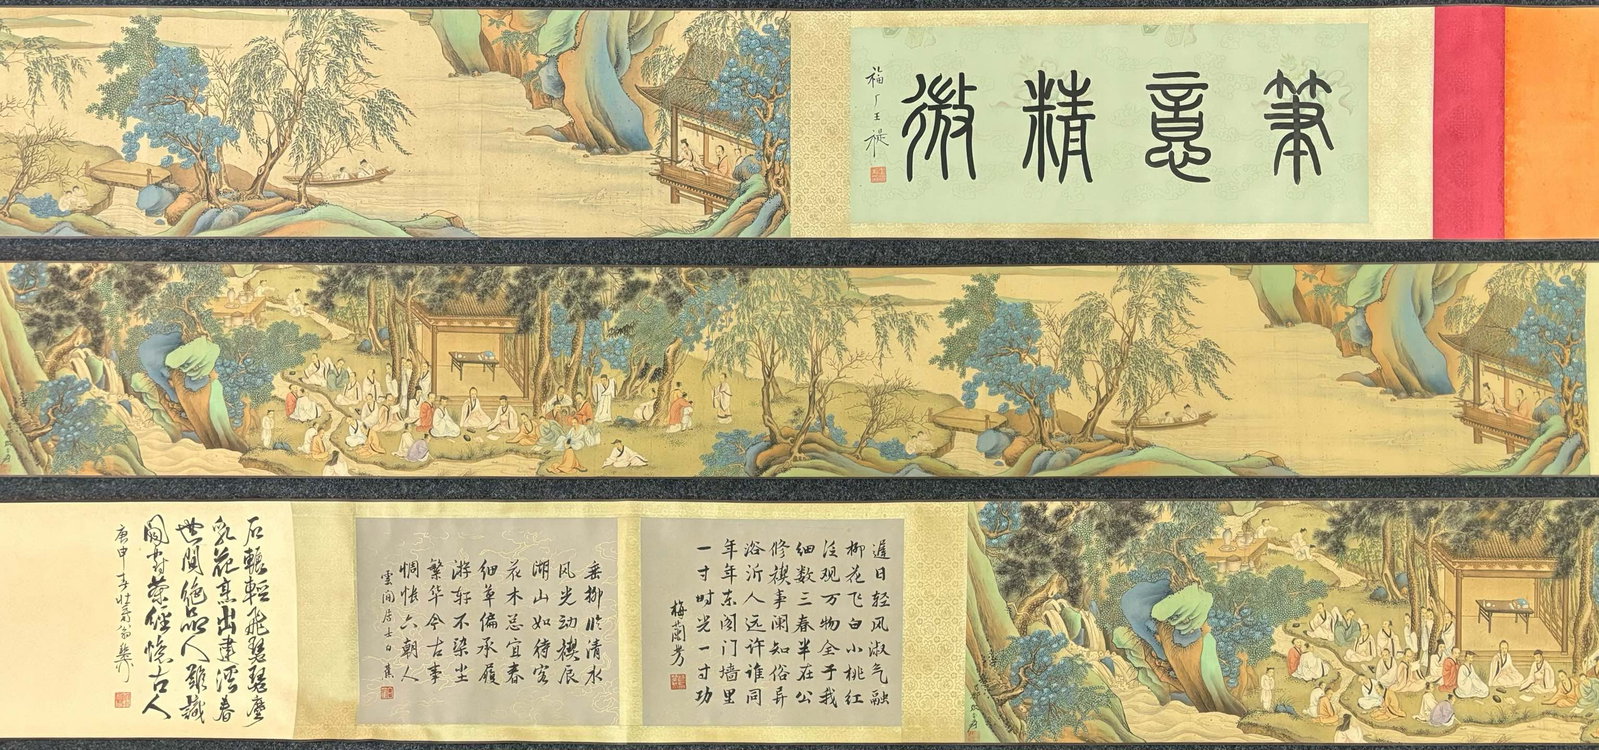 筆意精微
福厂王禔
遲日轻风淑气融
柳花飞白小桃红
泛观万物全于我
细数三春半在公
修禊事阑知俗异
浴沂人远许谁同
年年东阁门墙里
一寸时光一寸功
梅蘭芳
垂柳临清水
风光动禊辰
湖山如待客
花木总宜春
细草偏承履
游轩不染尘
繁华今古事
惆怅六朝人
雲间居士白蕉
石輾輕飛瑟瑟塵
乳花烹出建溪春
世間絶品人難識
閒對茶經憶古人
庚申 壮暮翁